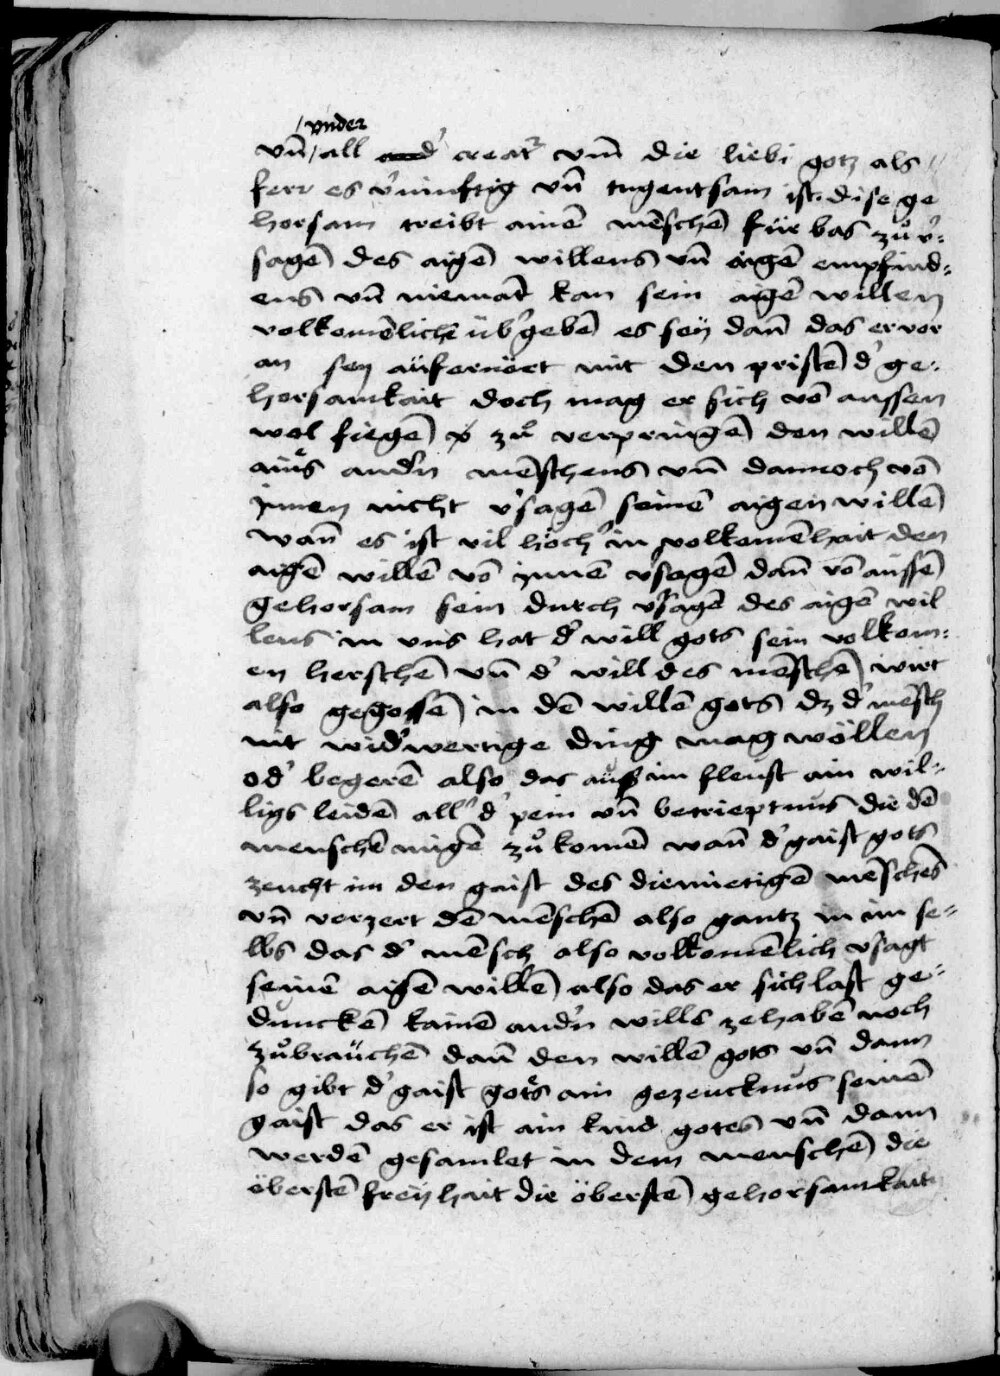 /vnder
vn̄ /all d' creat' vm̄ die liebi gotz als
ferr es v'nünftig vn̄ tugentsam ist. dise ge
horsam treibt ainē mēschē für bas zů v'=
sagē des aigē willens vn̄ aigē empfind=
ens vn̄ niemāt kan sein aigē willen
volkomēlichē üb'gebē es sey dan̄ das er vor
an sey auferüert mit den pristē d' ge=
horsamkait doch mag er sich vō aussen
wol fiegē zů verpringē den willē
ains and'n mēschens vn̄ dannoch vō
jnnen nicht v'sagē seinē aigen willē
wan̄ es ist vil höch' in volkomēhait den
aigē willē vō jnnē v'sagē dan̄ vō aussē
gehorsam sein durch v'sagē des aigē wil
lens in vns hat d' will gots sein volkom=
en herschē vn̄ d' will des mēschē wirt
also gegossē in dē willē gots dz d' mēsch
nit wid'wertige ding mag wöllen
od' begerē also das aus im fleust ain wil=
ligs leidē all' d' pein vn̄ betrieptnus die dē
menschē mügē zů komē wan̄ d' gaist gots
zeucht im den gaist des diemietigē mēsches
vn̄ verzert dē mēschē also gantz in im se=
lbs das d' mēsch also volkomēlich v'sagt
seinē aigē willē also das er sich last ge=
dunckē kainē and'n wills zehabē noch
zůbrauchē dan̄ den willē gots vn̄ dann
so gibt d' gaist gots ain gezeucknus seinē
gaist das er ist ain kind gotes vn̄ dann
werdē gesamlet in dem menschē die
öberstē freyhait die öberstē gehorsamkait